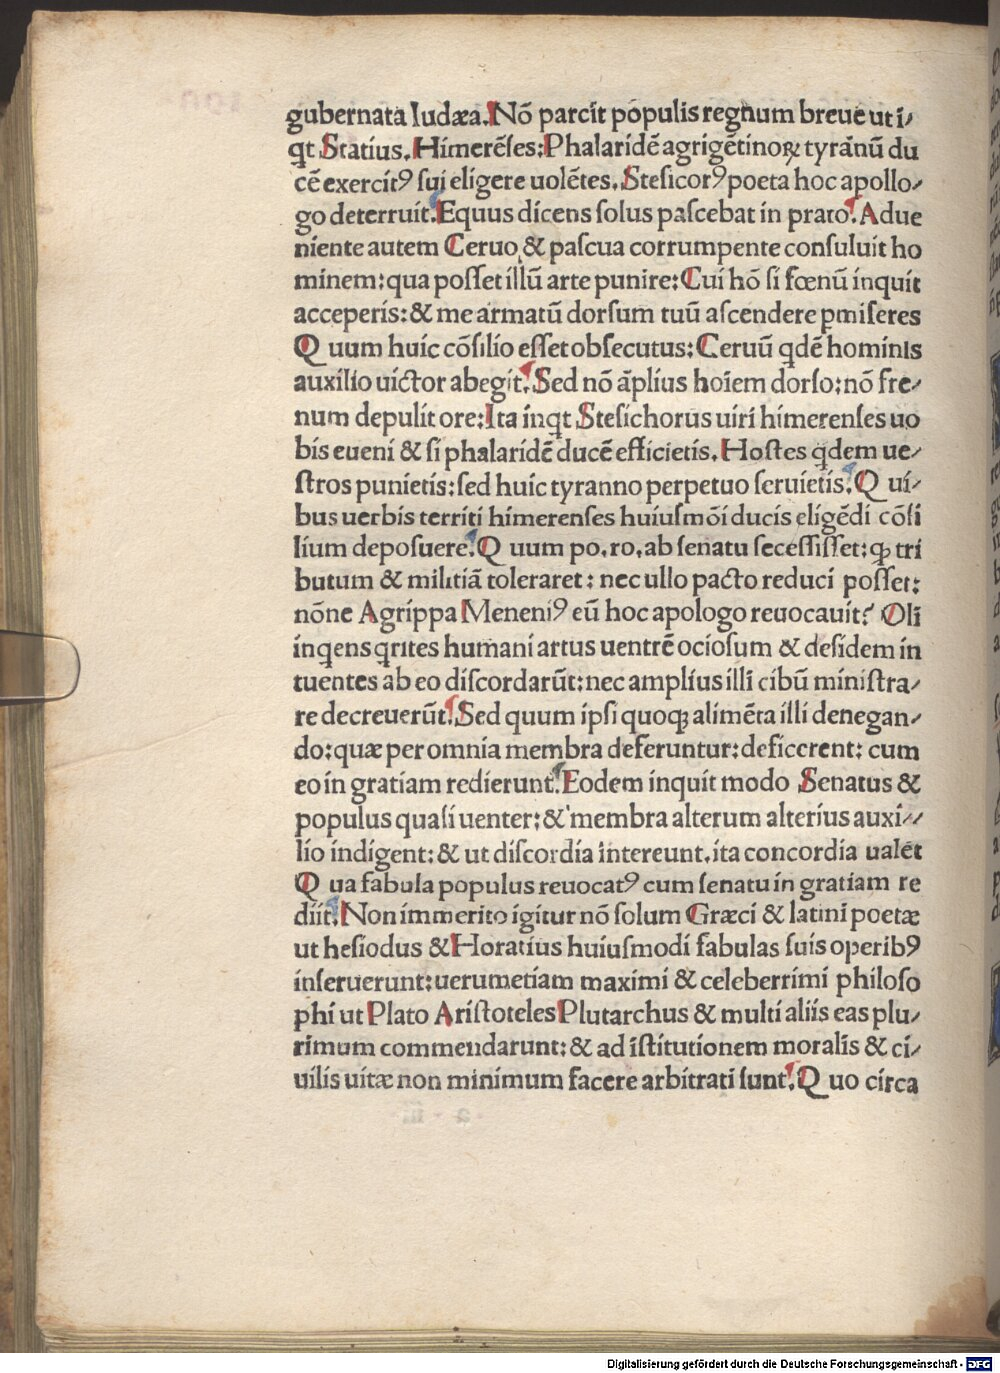 gubernata Iudæa. Nō parcit populis regnum breue ut i⸗
qt Statius. Himerēſes: Phalaridē agrigētinoꝝ tyrānū du
cē exercitꝰ ſui eligere uolētes. Steſicorꝰ poeta hoc apollo⸗
go deterruit. Equus dicens ſolus paſcebat in prato. Adue
niente autem Ceruo & paſcua corrumpente conſuluit ho
minem: qua poſſet illū arte punire: Cui hō ſi fœnū inquit
acceperis: & me armatū dorſum tuū aſcendere ꝑmiſeres
Q uum huic cōſilio eſſet obſecutus: Ceruū qdē hominis
auxilio uictor abegit. Sed nō āplius hoīem dorſo: nō fre⸗
num depulit ore: Ita inqt Steſichorus uiri himerenſes uo
bis eueni & ſi phalaridē ducē efficietis. Hoſtes qdem ue⸗
ſtros punietis: ſed huic tyranno perpetuo ſeruietis. Q ui⸗
bus uerbis territi himerenſes huiuſmōi ducis eligēdi cōſi
lium depoſuere. Q uum po. ro. ab ſenatu ſeceſſiſſet: ꝙ tri
butum & militiā toleraret: nec ullo pacto reduci poſſet:
nōne Agrippa Meneniꝰ eū hoc apologo reuocauit? Oli
inqens qrites humani artus uentrē ocioſum & deſidem in
tuentes ab eo diſcordarūt: nec amplius illi cibū miniſtra⸗
re decreuerūt. Sed quum ipſi quoqꝫ alimēta illi denegan⸗
do: quæ per omnia membra deferuntur: deficerent: cum
eo in gratiam redierunt. Eodem inquit modo Senatus &
populus quaſi uenter: & membra alterum alterius auxi⸗
lio indigent: & ut diſcordia intereunt. ita concordia ualēt
Q ua fabula populus reuocatꝰ cum ſenatu in gratiam re
diit. Non immerito igitur nō ſolum Græci & latini poetæ
ut heſiodus & Horatius huiuſmodi fabulas ſuis operibꝰ
inſeruerunt: uerumetiam maximi & celeberrimi philoſo
phi ut Plato Ariſtoteles Plutarchus & multi aliis eas plu⸗
rimum commendarunt: & ad iſtitutionem moralis & ci⸗
uilis uitæ non minimum facere arbitrati ſunt. Q uo circa
Digitalisierung gefördert durch die Deutsche Forschungsgemeinschaft - DFG